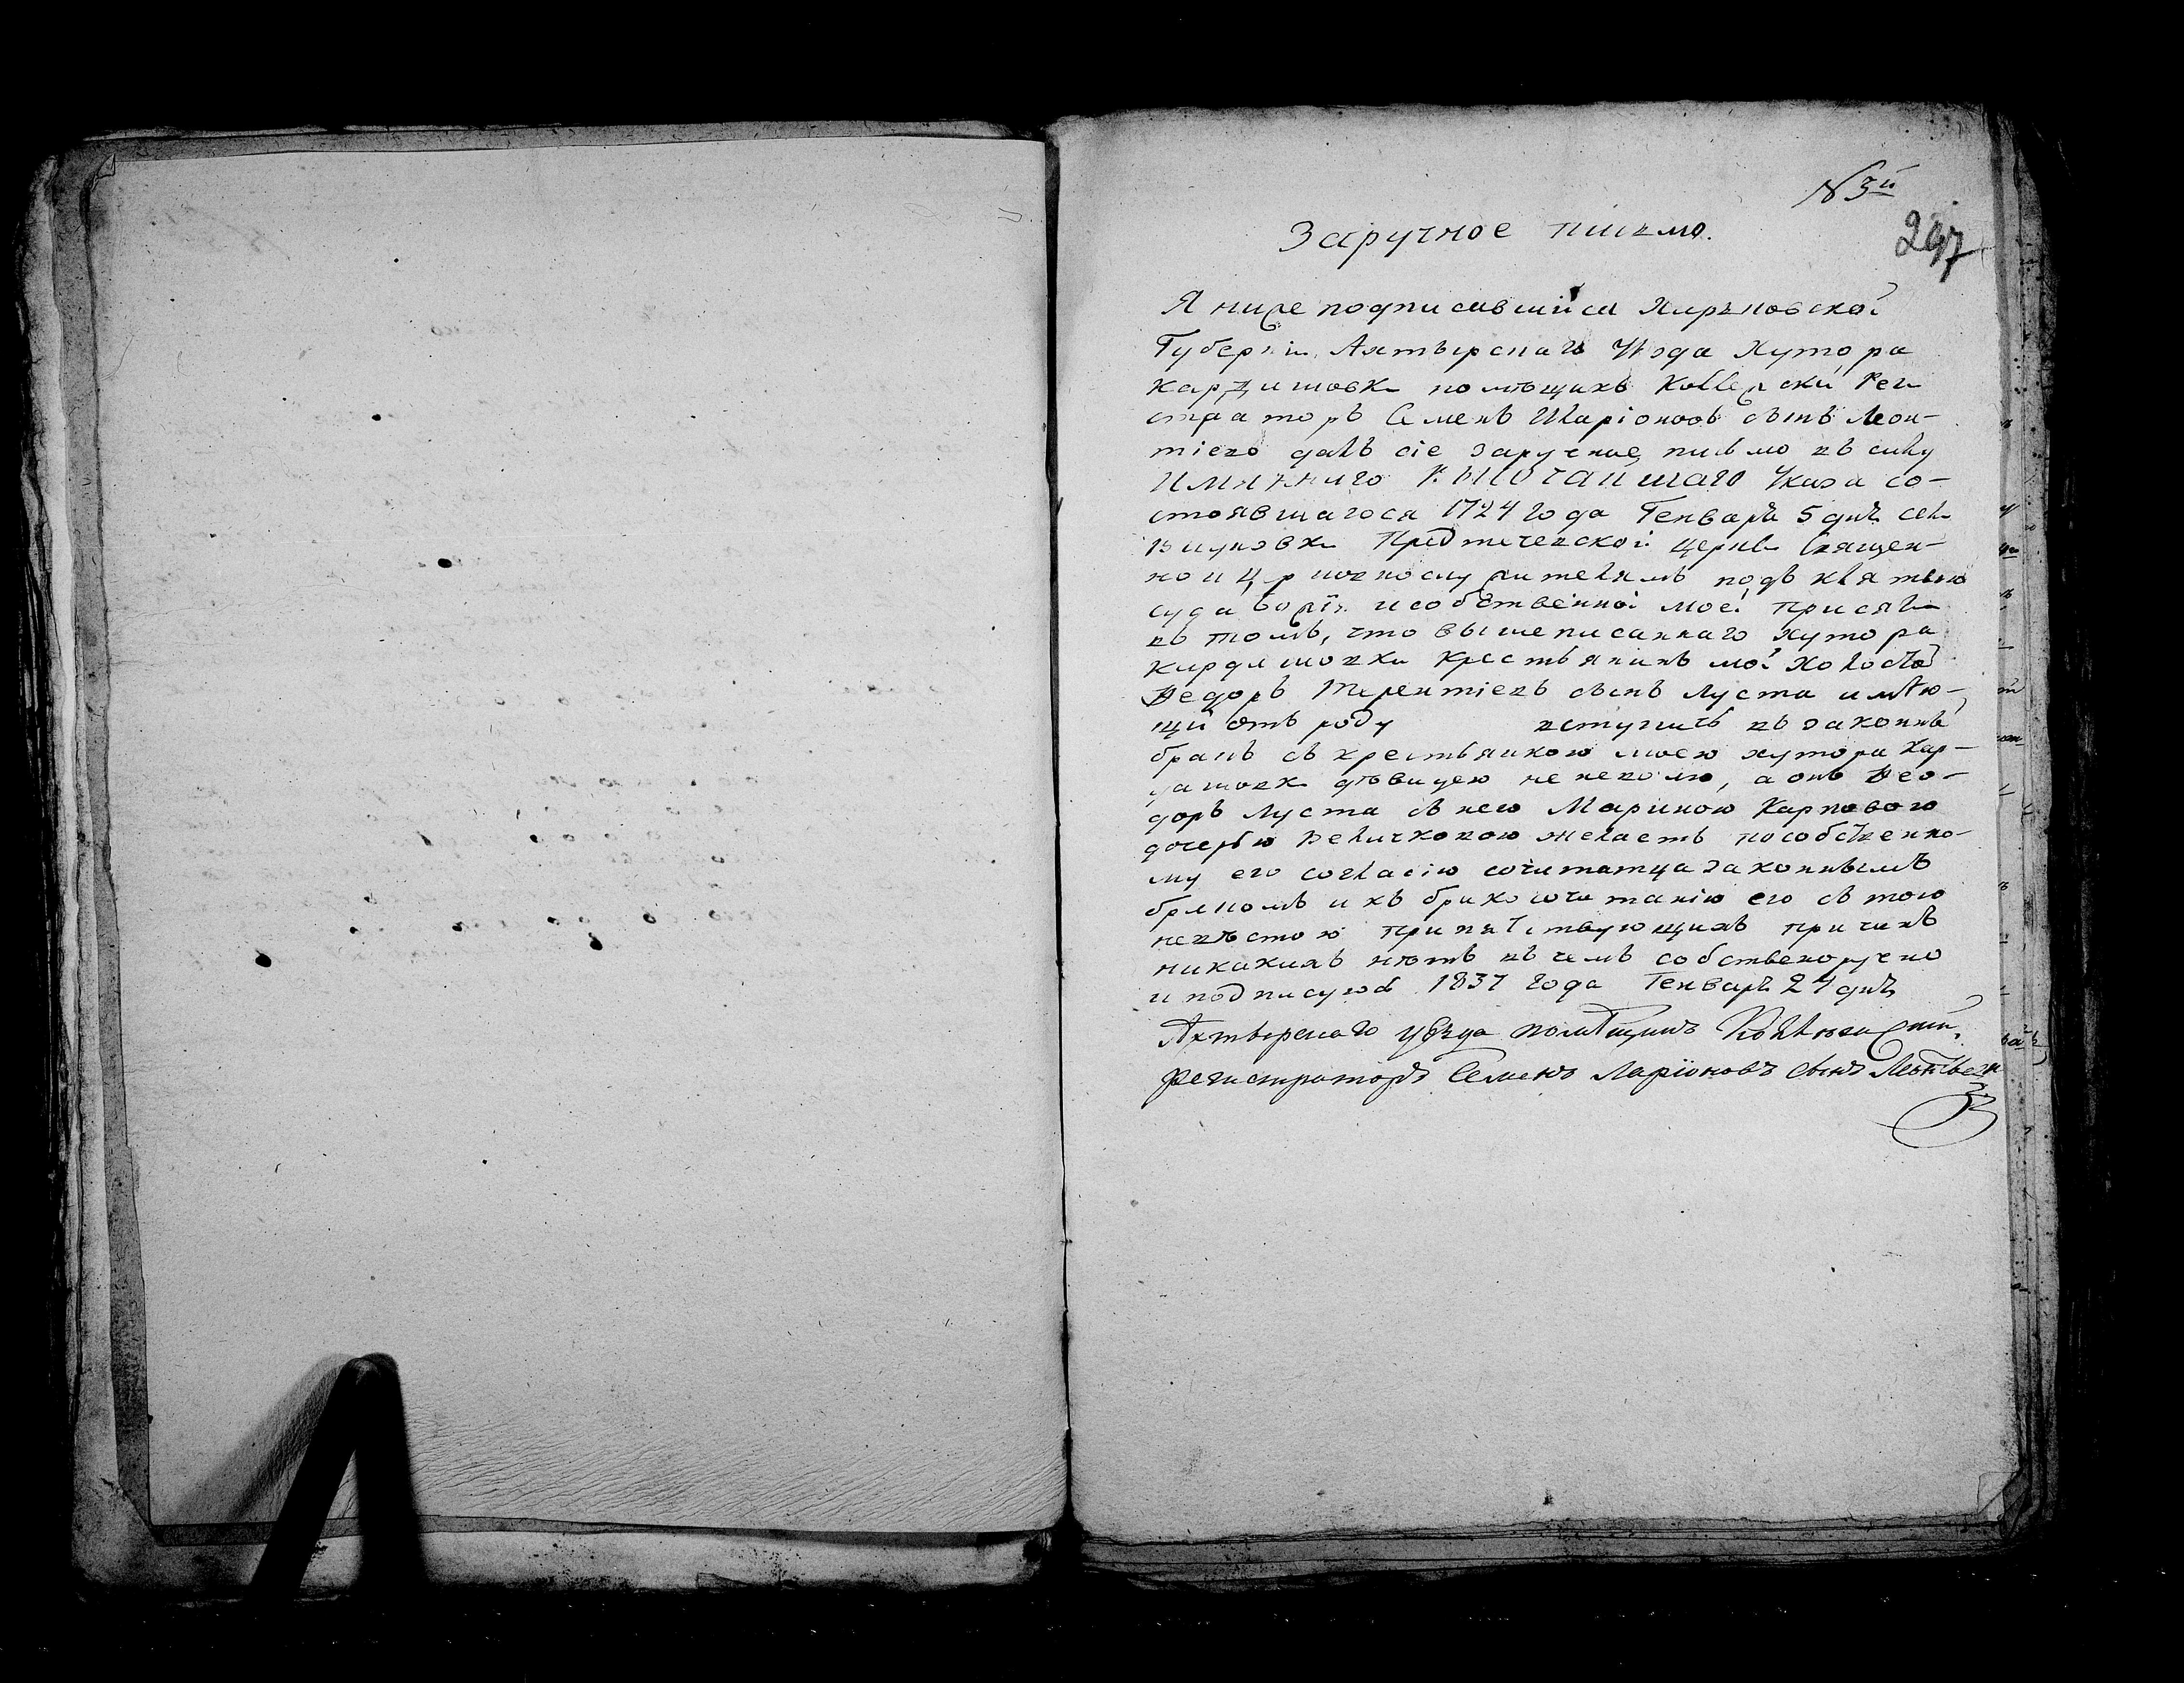 № 3й
297
Заручное письмо.
Я ниже подписавшийся Харьковской
Губерніи Ахтырскаго Уѣзда Хутора
Кардашовки помѣщикъ Коллежскій Реги
страторъ Семенъ Иларіоновъ сынъ Леон-
тіевъ далъ сіе заручное письмо въ силу
Имяннаго Высочайшаго Указа со-
стоявшагося 1724 года Генваря 5 дня сел
Предтечевской церкви Священ-
но и Церковнослужителямъ подъ клятвою
суда Божія и собственной моей присяги
въ томъ, что вышеписаннаго хутора
Кардашовки крестьянинъ мой холостой
Федоръ Терентіевъ сынъ Луста имѣю-
щій отъ роду вступить въ законный
бракъ съ крестьянкою моею хутора Кар-
дашовк дѣвицею не неволю, а онъ Фео-
доръ Луста съ нею Мариною Карповою
дочерью Величковою желаетъ по собственно-
му его согласію сочитатца законнымъ
бракомъ и къ бракосочитанію его съ тою
невѣстою припятствующихъ причинъ
никакихъ нѣтъ въ чемъ собственоручно
и подписуюсь 1837 года Генваря 24 дня
Ахтырскаго уѣзда помѣщикъ
регистраторъ Семенъ Ларіоновъ сынъ